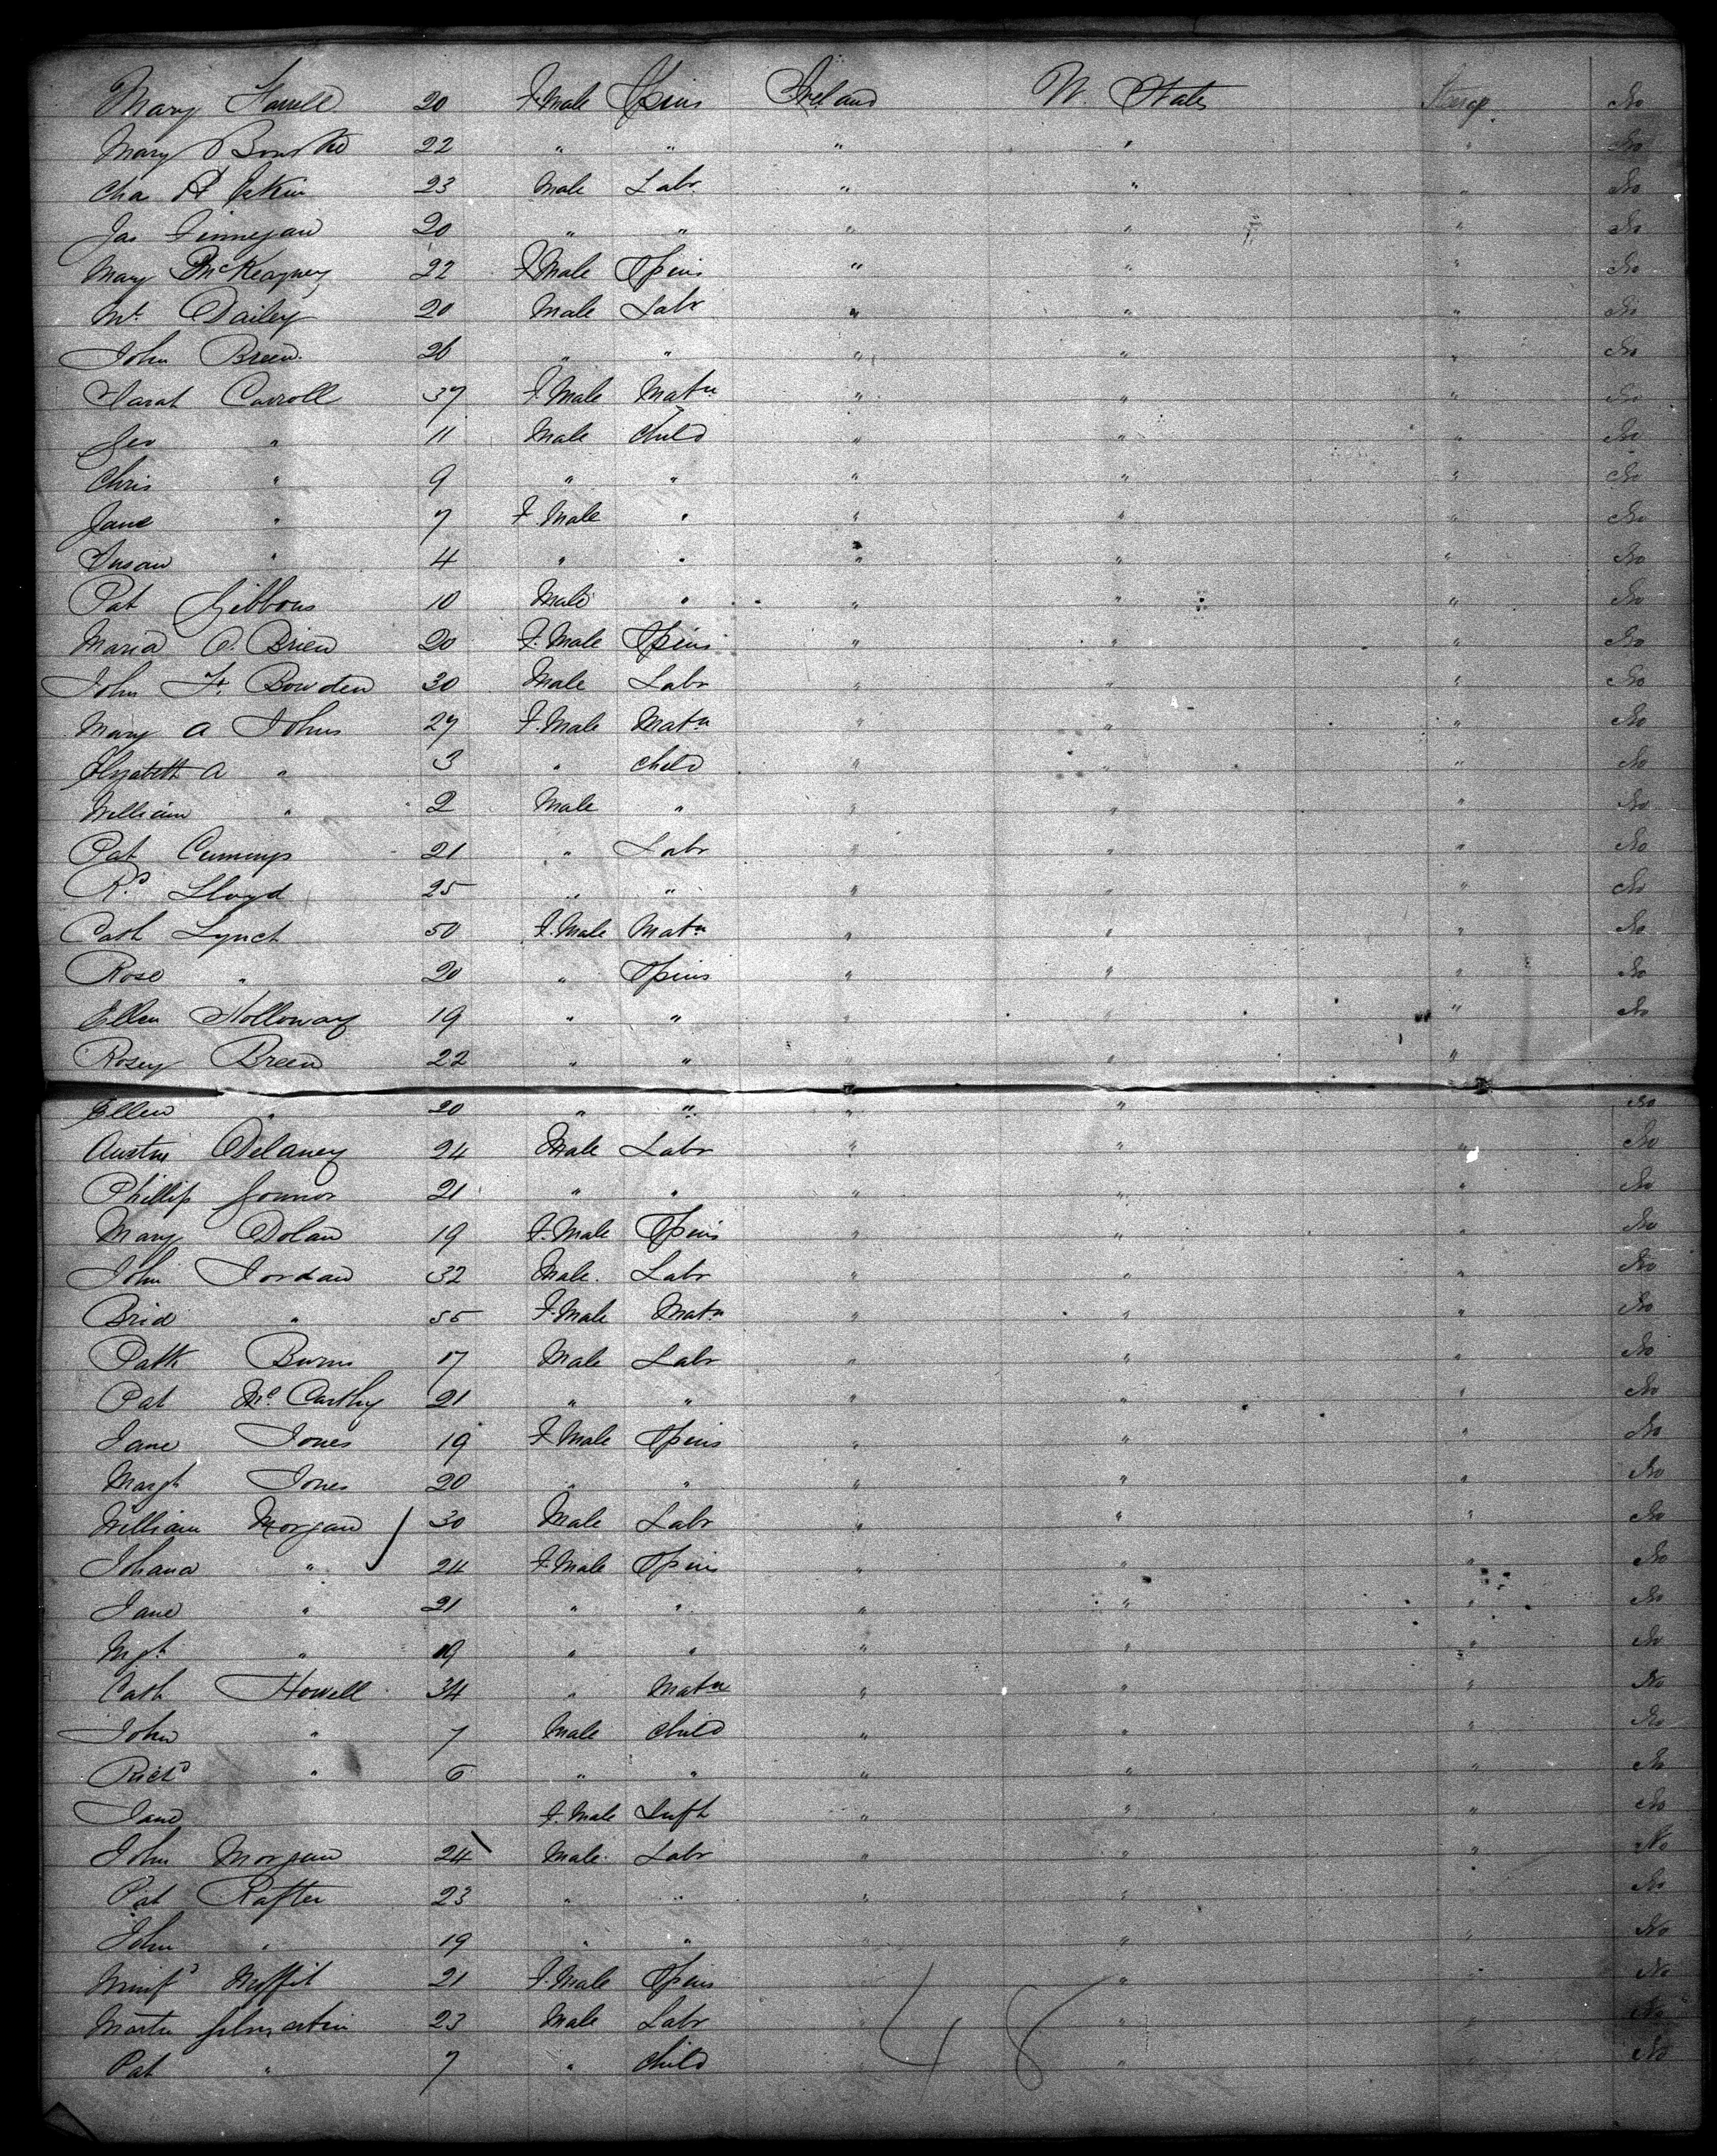 Mary Farrell 20 F.Male Spins Ireland U. States Steerage No
Mary Bourke 22 " " " " " No
Cha R Erskin 23 Male Labr " " " No
Jas Finnegan 20 " " " " " No
Mary McKeagney 22 F.Male Spins " " " No
Mt Dailey 20 Male Labr " " " No
John Breen 26 " " " " " No
Sarah Carroll 37 F.Male Matn " " " No
Geo " 11 Male Child " " " No
Chris " 9 " " " " " No
Jane " 7 F.Male " " " " No
Susan " 4 " " " " " No
Pat Gibbons 10 Male " " " " No
Maria O.Brien 20 F.Male Spins " " " No
John H. Bowden 30 Male Labr " " " No
Mary A Johns 27 F.Male Matn " " " No
Elizabeth A " 3 " Child " " " No
William " 2 Male " " " " No
Pat Cumings 21 " Labr " " " No
Rd Lloyd 25 " " " " " No
Cath Lynch 50 F.Male Matn " " " No
Rose " 20 " Spins " " " No
Ellen Holloway 19 " " " " " No
Rosey Breen 22 " " " " "
Ellen " 20 " " " " No
Austin Delaney 24 Male Labr " " " No
Phillip Connor 21 " " " " " No
Mary Dolan 19 F.Male Spins " " " No
John Jordan 32 Male. Labr " " " No
Brid " 55 F.Male Matn " " " No
Patk Burns 17 Male Labr " " " No
Pat Mc Carthy 21 " " " " " No
Jane Jones 19 F.Male Spins " " " No
Margt Jones 20 " " " " " No
William Morgan 30 Male Labr " " " No
Johana " 24 F.Male Spins " " " No
Jane " 21 " " " " " No
Mgt. " 19 " " " " " No
Cath Howell 34 " Matn " " " No
John " 7 Male Child " " " No
Richd " 6 " " " " " No
Jane F.Male Inft " " " No
John Morgan 24 Male. Labr " " " No
Pat Rafter 23 " " " " No
John " 19 " " " " " No
Winifd Moffit 21 F.Male Spins " No
Martin Gilmartin 23 Male Labr " " No
Pat " 7 " Child " " No
48